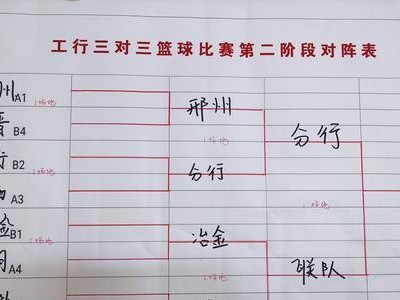 工行三对三篮球比赛第二阶段对阵表
州A1
1场地
邢州
B4
1场地
分行
行B2
2场地
分行
A3
1场地
B1
2场地
冶金
A4
联队